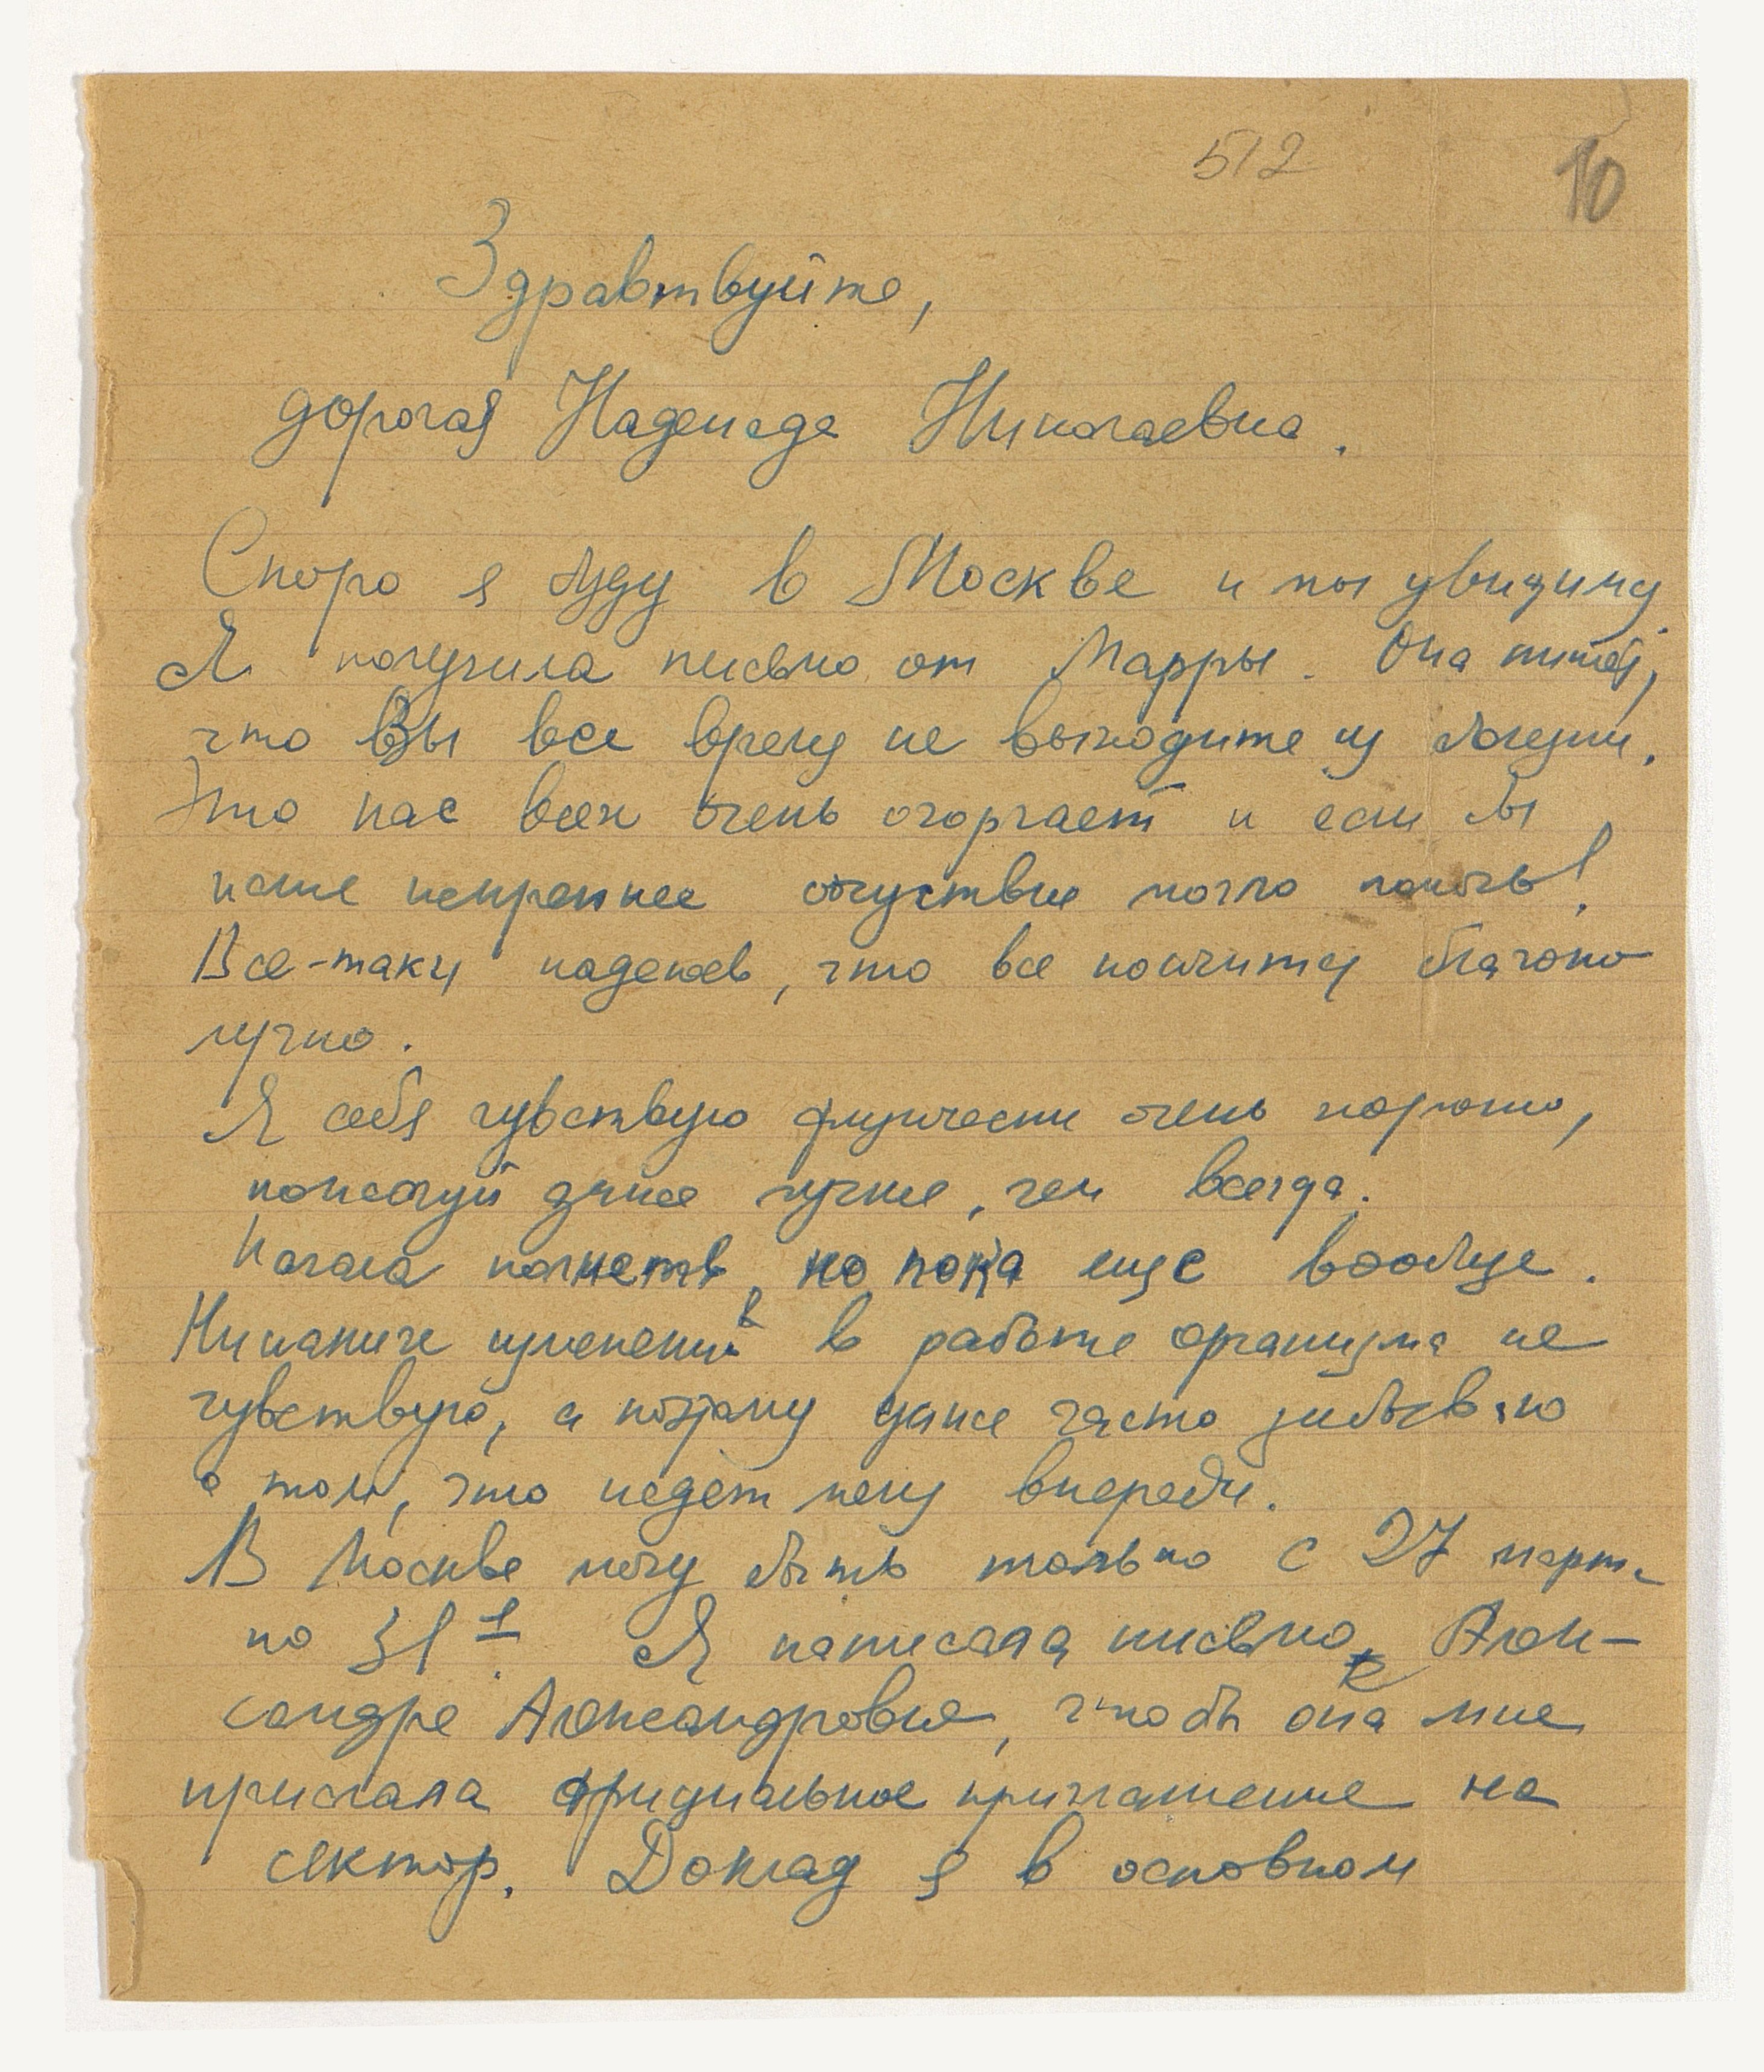 512 10
Здравтвуйте,
дорогая Надежда Николаевна.
Скоро я буду в Москве и мы увидимся
Я получила письмо от Марры. Она пишет,
что Вы все время не выходите из болезни.
Это нас всех очень огорчает и если бы
наше искреннее сочуствие могло помочь!
Все-таки надеюсь, что все кончится благопо
лучно.
Я себя чувствую физически очень хорошо,
пожалуй даже лучше, чем всегда.
Начала полнеть, но пока еще вообще.
Никаких изменений в работе организма не
чувствую, а потому даже часто забываю
о том, что ждет меня впереди.
В Москве могу быть только с 27 марта
по 31 Я написала письмо к Алек-
сандре Александровне, чтобы она мне
прислала официальное приглашение на
сектор. Доклад я в основном